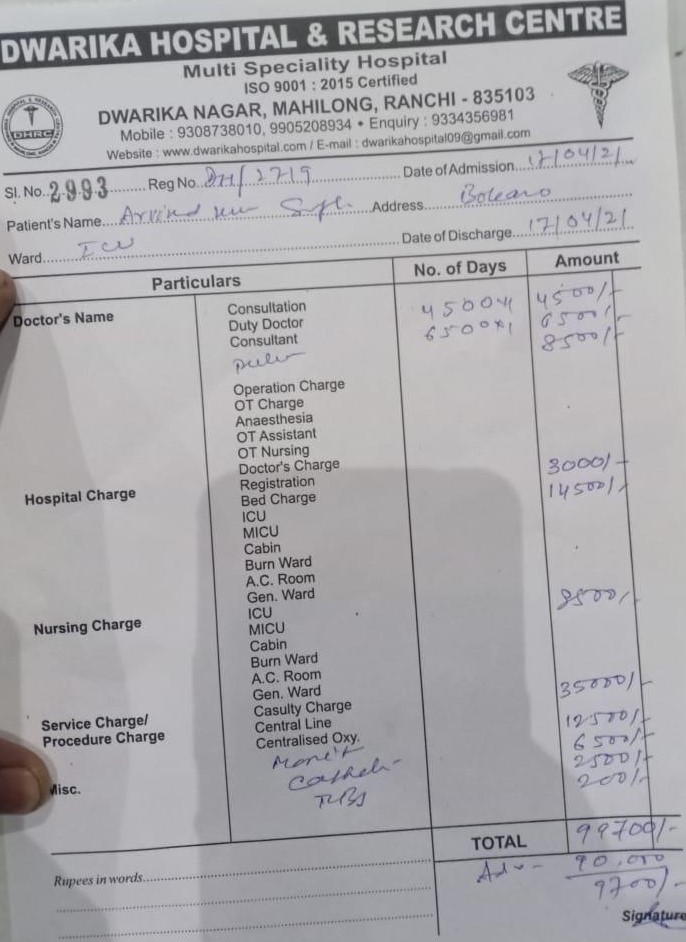 DWARIKA HOSPITAL & RESEARCH CENTRE
Multi Speciality Hospital
ISO 9001 : 2015 Certified
DHRC
DWARIKA NAGAR, MAHILONG, RANCHI - 835103
Mobile : 9308738010, 9905208934 • Enquiry : 9334356981
Website : www.dwarikahospital.com / E-mail : dwarikahospital09@gmail.com
Sl. No. 2993 Reg No. DH/2719 Date of Admission 17/04/21
Patient's Name Arvind Address Bokaro
Ward ICU Date of Discharge 17/04/21
Particulars No. of Days Amount
Doctor's Name Consultation 4500x1 4500/-
Duty Doctor 6500x1 6500/-
Consultant 8500/-
Operation Charge
OT Charge
Anaesthesia
OT Assistant
OT Nursing
Doctor's Charge 3000/-
Hospital Charge Registration 14500/-
Bed Charge
ICU
MICU
Cabin
Burn Ward
A.C. Room
Gen. Ward 8500/-
Nursing Charge ICU
MICU
Cabin
Burn Ward
A.C. Room
Gen. Ward 35000/-
Service Charge/ Casulty Charge 12500/-
Procedure Charge Central Line 6500/-
Centralised Oxy. 2500/-
Misc. 200/-
TOTAL 99700/-
Rupees in words Adv- 90,000
9700/-
Signature